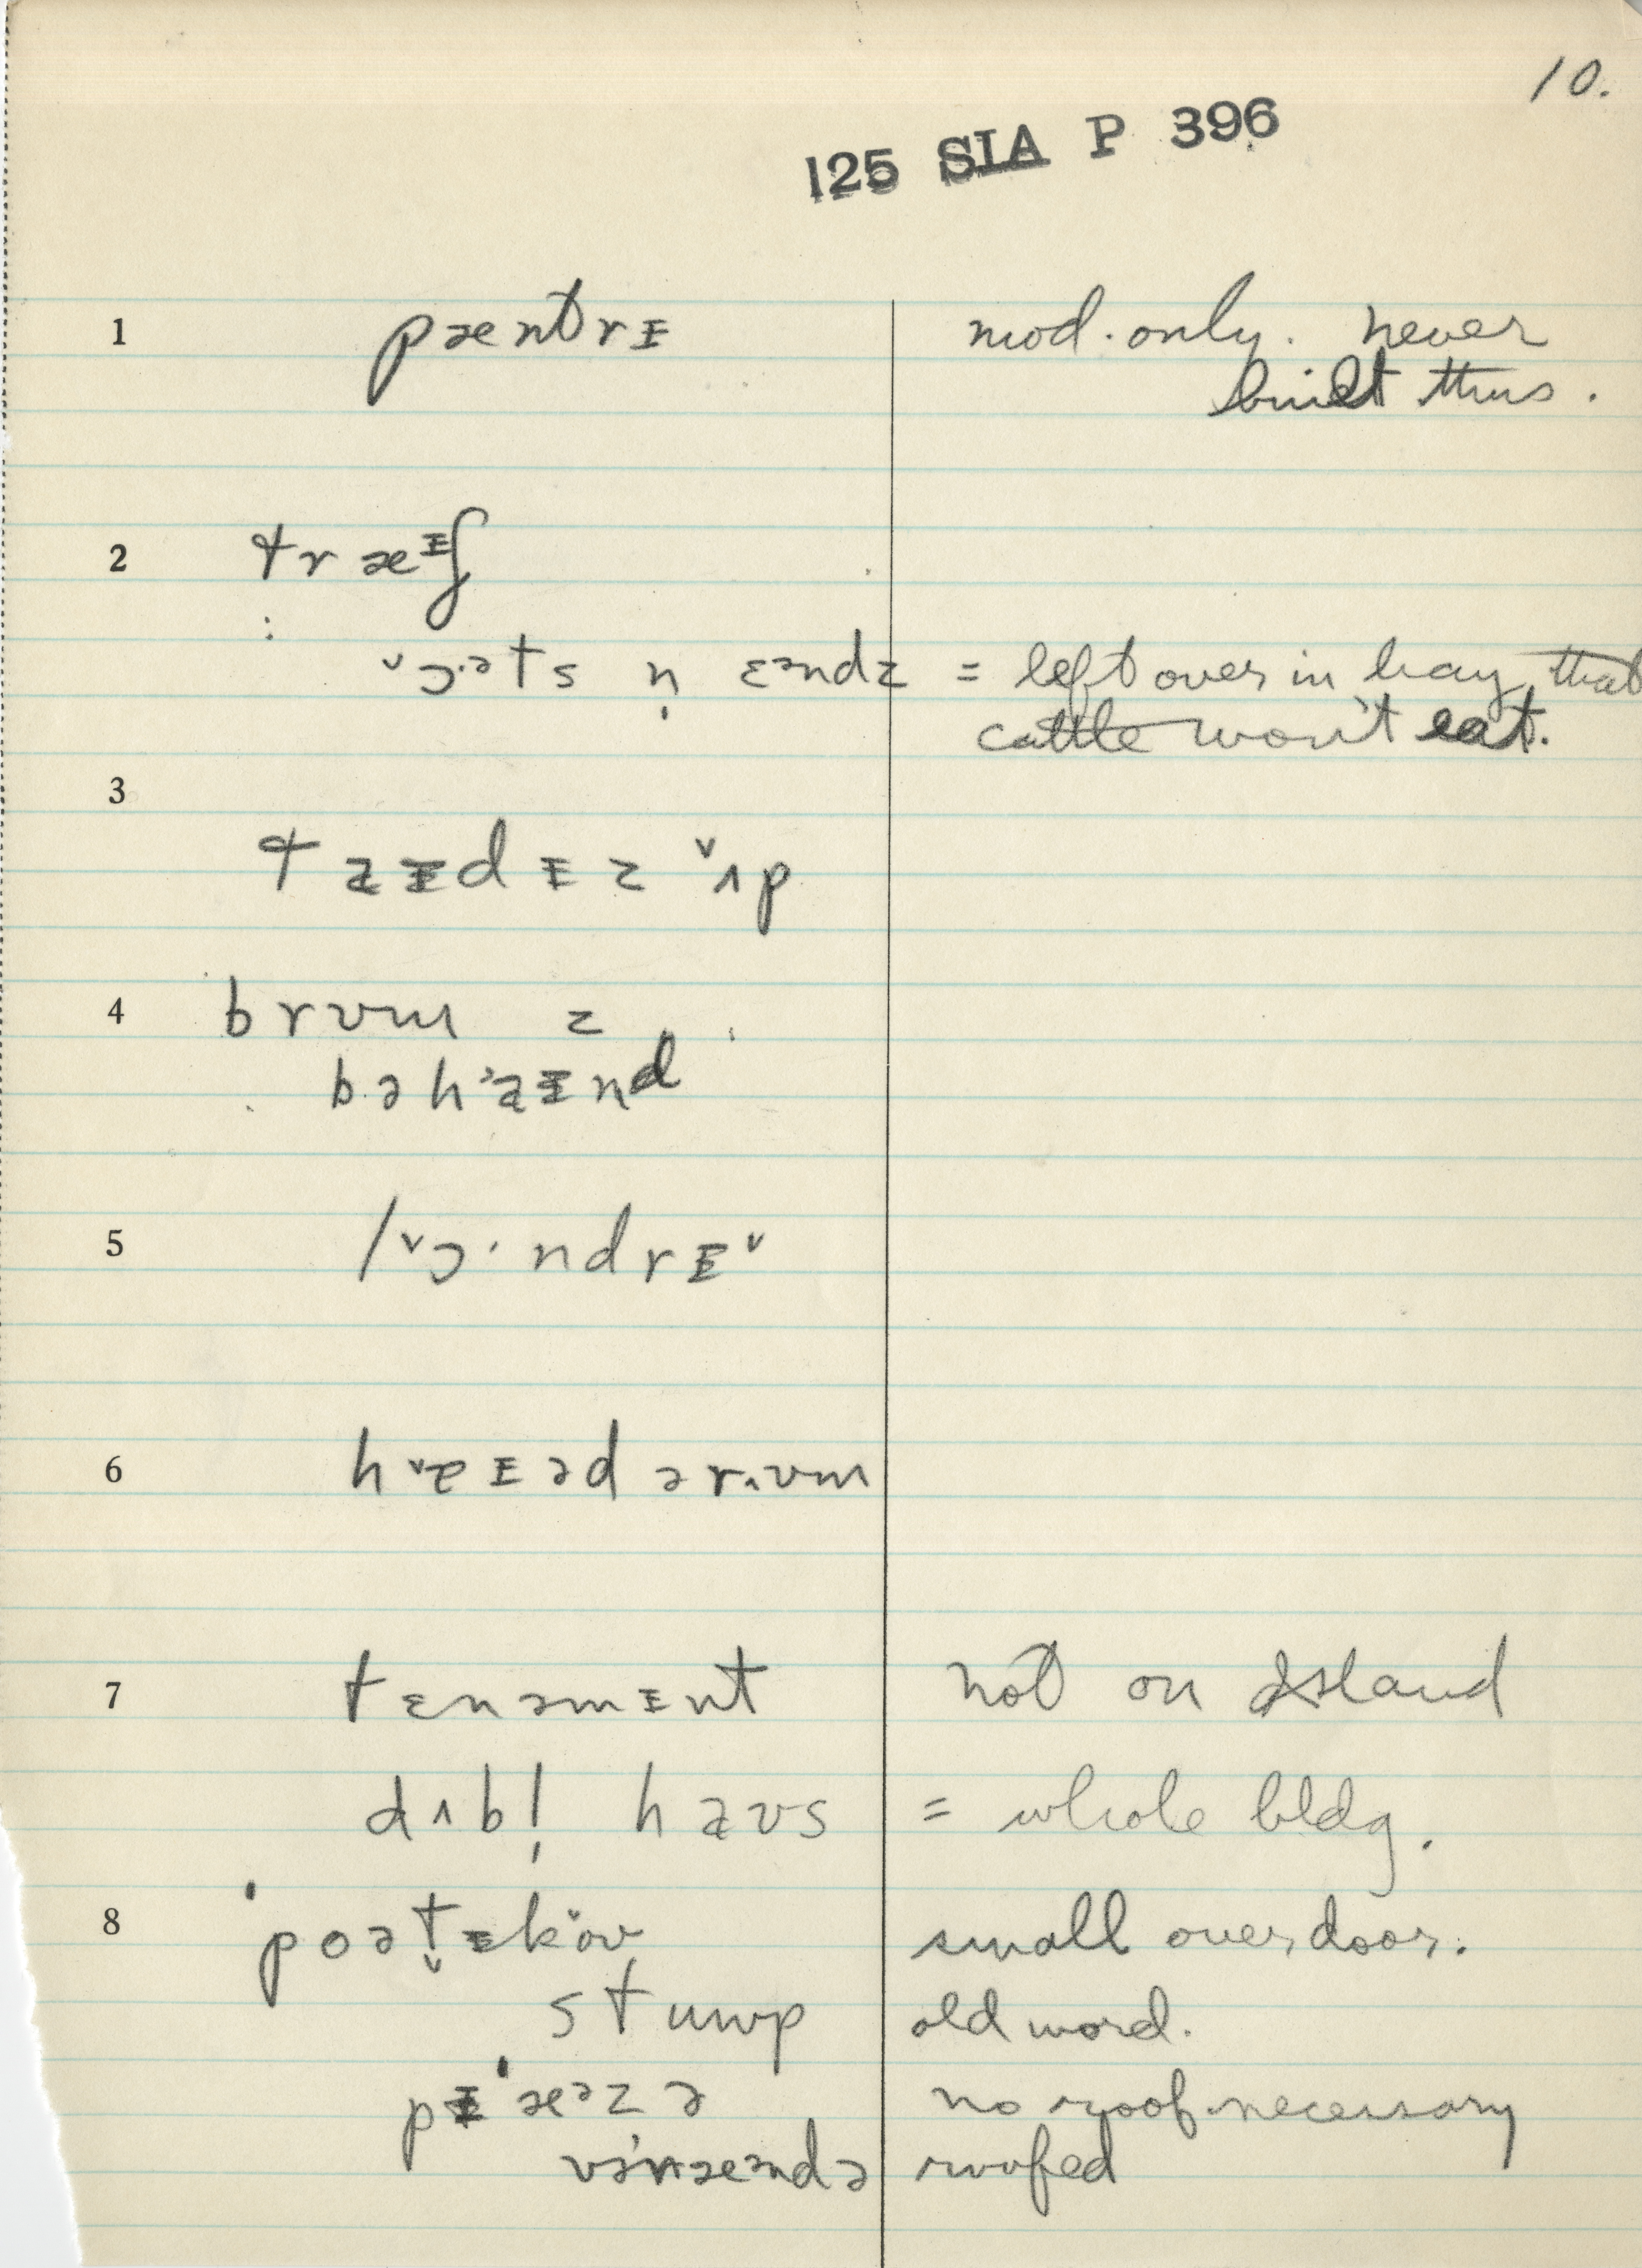 10.
125 SIA P 396
1 pæntrɪ mod. only. never
built thus.
2 træɪʃ
ɔəts n̩ ɛəndz = left over in hay that
cattle won't eat.
3
taɪdɪz ʌp
4 brʊm z
bəhaɪnd
5 lɔ·ndrɪ
6 hɐɪədərʊm
7 tɛnəmɛnt not on Island
dʌbl̩ haʊs = whole bldg.
8 small over door.
stup old word.
pɪˈæᵊzə no roof necessary
vərændə roofed